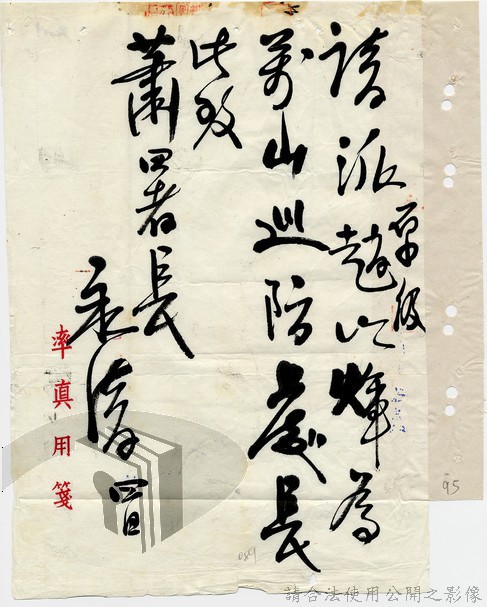 請派趙以煇為
原級
萬山巡防處長
此致
蕭署長
率真用箋
95
089
請合法使用公開之影像